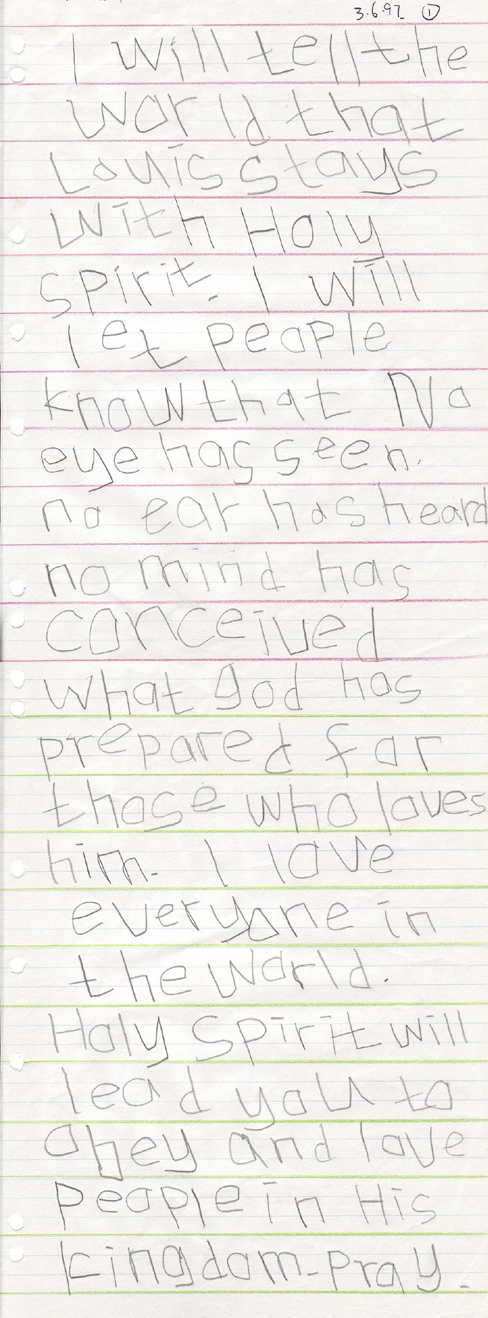 3.6.97 ①
I will tell the
world that
Louis stays
with Holy
spirit. I will
let people
know that No
eye has seen.
no ear has heard
no mind has
conceived
what god has
prepared for
those who loves
him. I love
everyone in
the world.
Holy Spirit will
lead you to
obey and love
people in His
kingdom. pray.